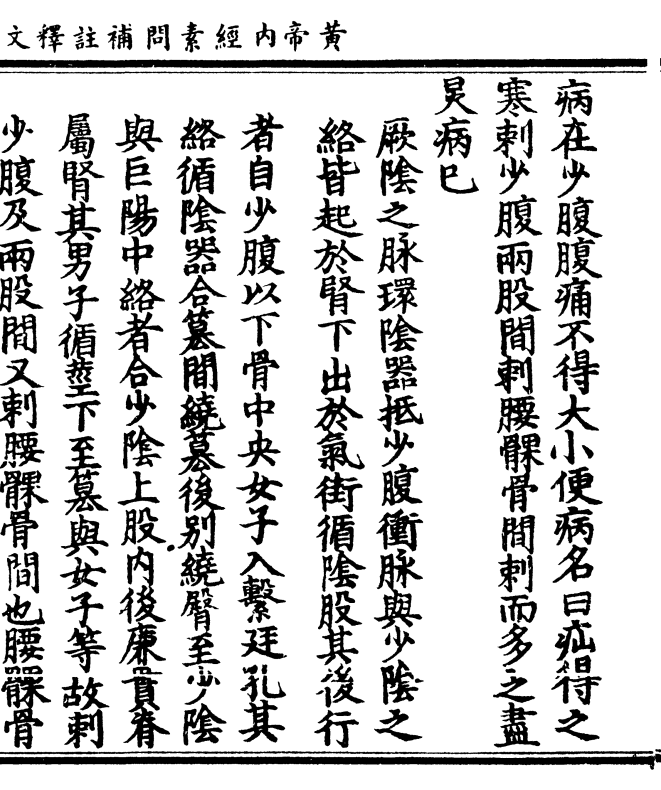 黃帝內經素問補註釋文
病在少腹腹痛不得大小便病名曰疝得之
寒刺少腹兩股間刺腰髁骨間刺而多之盡
炅病已
厥陰之脉環陰器抵少腹衝脉與少陰之
絡皆起於腎下出於氣街循陰股其後行
者自少腹以下骨中央女子入繫廷孔其
絡循陰器合篡間繞篡後別繞臀至少陰
與巨陽中絡者合少陰上股內後廉貫脊
屬腎其男子循莖下至篡與女子等故刺
少腹及兩股間又刺腰髁骨間也腰髁骨